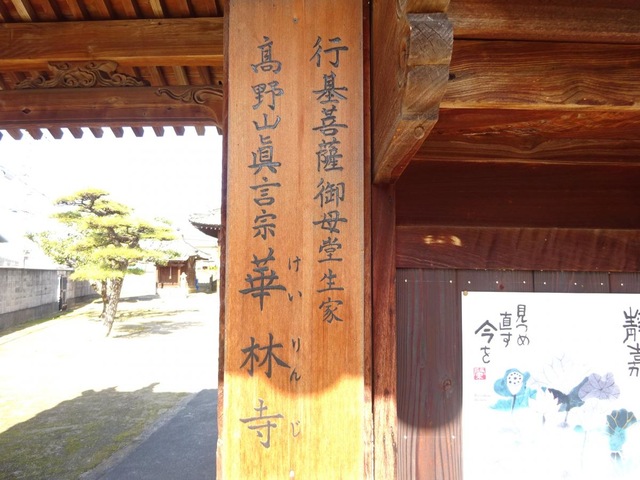 行基菩薩御母堂生家
髙野山眞言宗 華林寺
けいりんじ
静嘉
見つめ
直す
今を